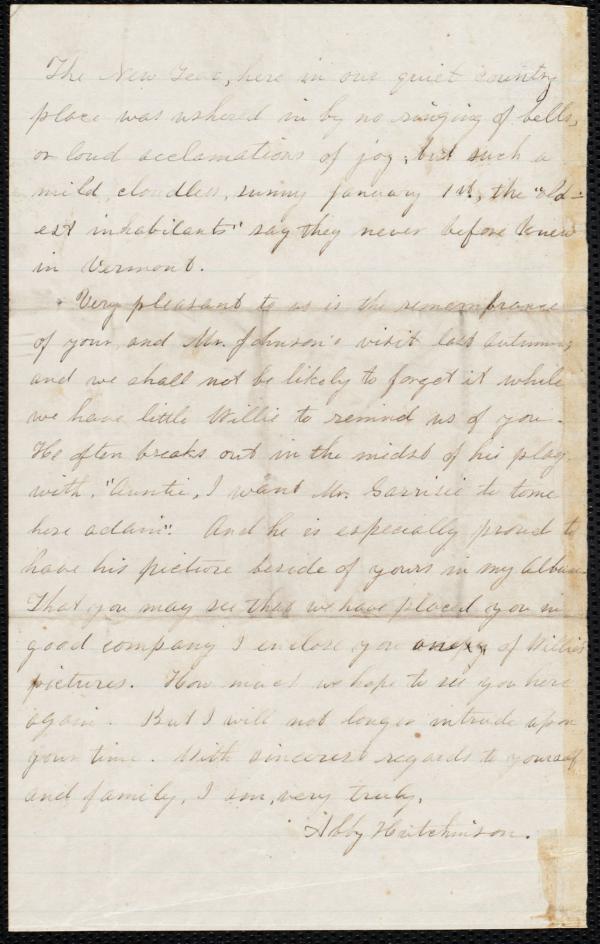 The New Year, here in our quiet country
place was ushered in by no ringing of bells,
or loud acclamations of joy, but such a
mild, cloudless, sunny January 1st, the "old-
est inhabitants" say they never before knew
in Vermont.
Very pleasant to us is the remembrance
of your, and Mr. Johnson's visit last autumn,
and we shall not be likely to forget it while
we have little Willie to remind us of you.
He often breaks out in the midst of his play
with, "Auntie, I want Mr. Garrisie to tome
here adain". And he is especially proud to
have his picture beside of yours in my album.
That you may see that we have placed you in
good company I enclose you one of Willie's
pictures. How much we hope to see you here
again. But I will not longer intrude upon
your time. With sincerest regards to yourself
and family, I am, very truly,
Abby Hutchinson.